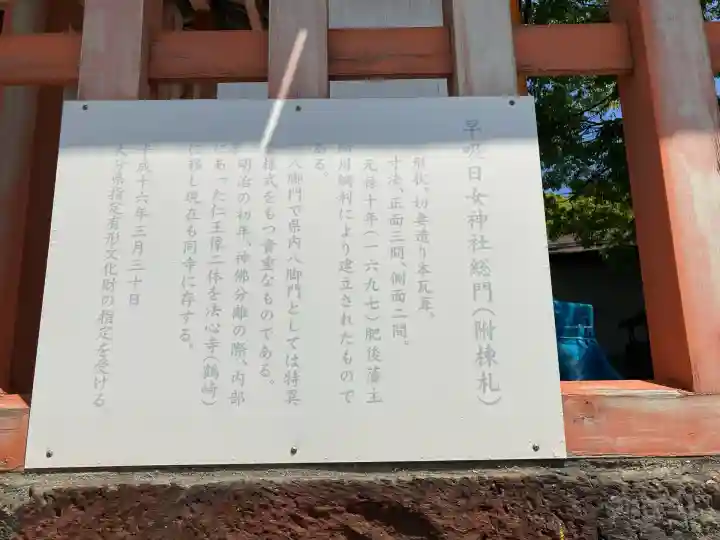 早吸日女神社総門(附棟札)
形状、切妻造り本瓦葺。
寸法、正面三間、側面二間。
元禄十年(一六九七)肥後藩主
細川綱利により建立されたもので
ある。
八脚門で県内八脚門としては特異
な様式をもつ貴重なものである。
明治の初年、神佛分離の際、内部
にあった仁王像二体を法心寺(鶴崎)
に移し現在も同寺に存する。
平成十六年三月三十日
大分県指定有形文化財の指定を受ける